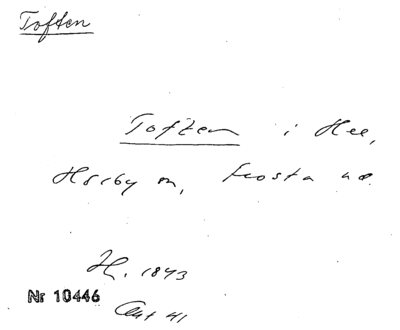 Toften
Toften i Hee,
Hörby sn, Frosta hd.
H. 1843
Nr 10446
Akt 41